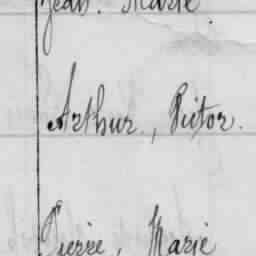 Jean. Marie
Arthur, Victor.
Pierre, Marie